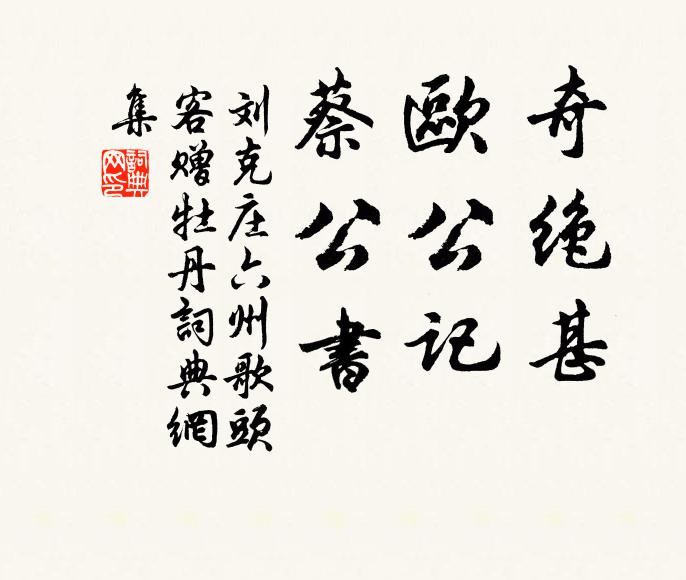 奇绝甚
歐公记
蔡公書
刘克庄六州歌頭
客赠牡丹詞典網
集
詞典网印